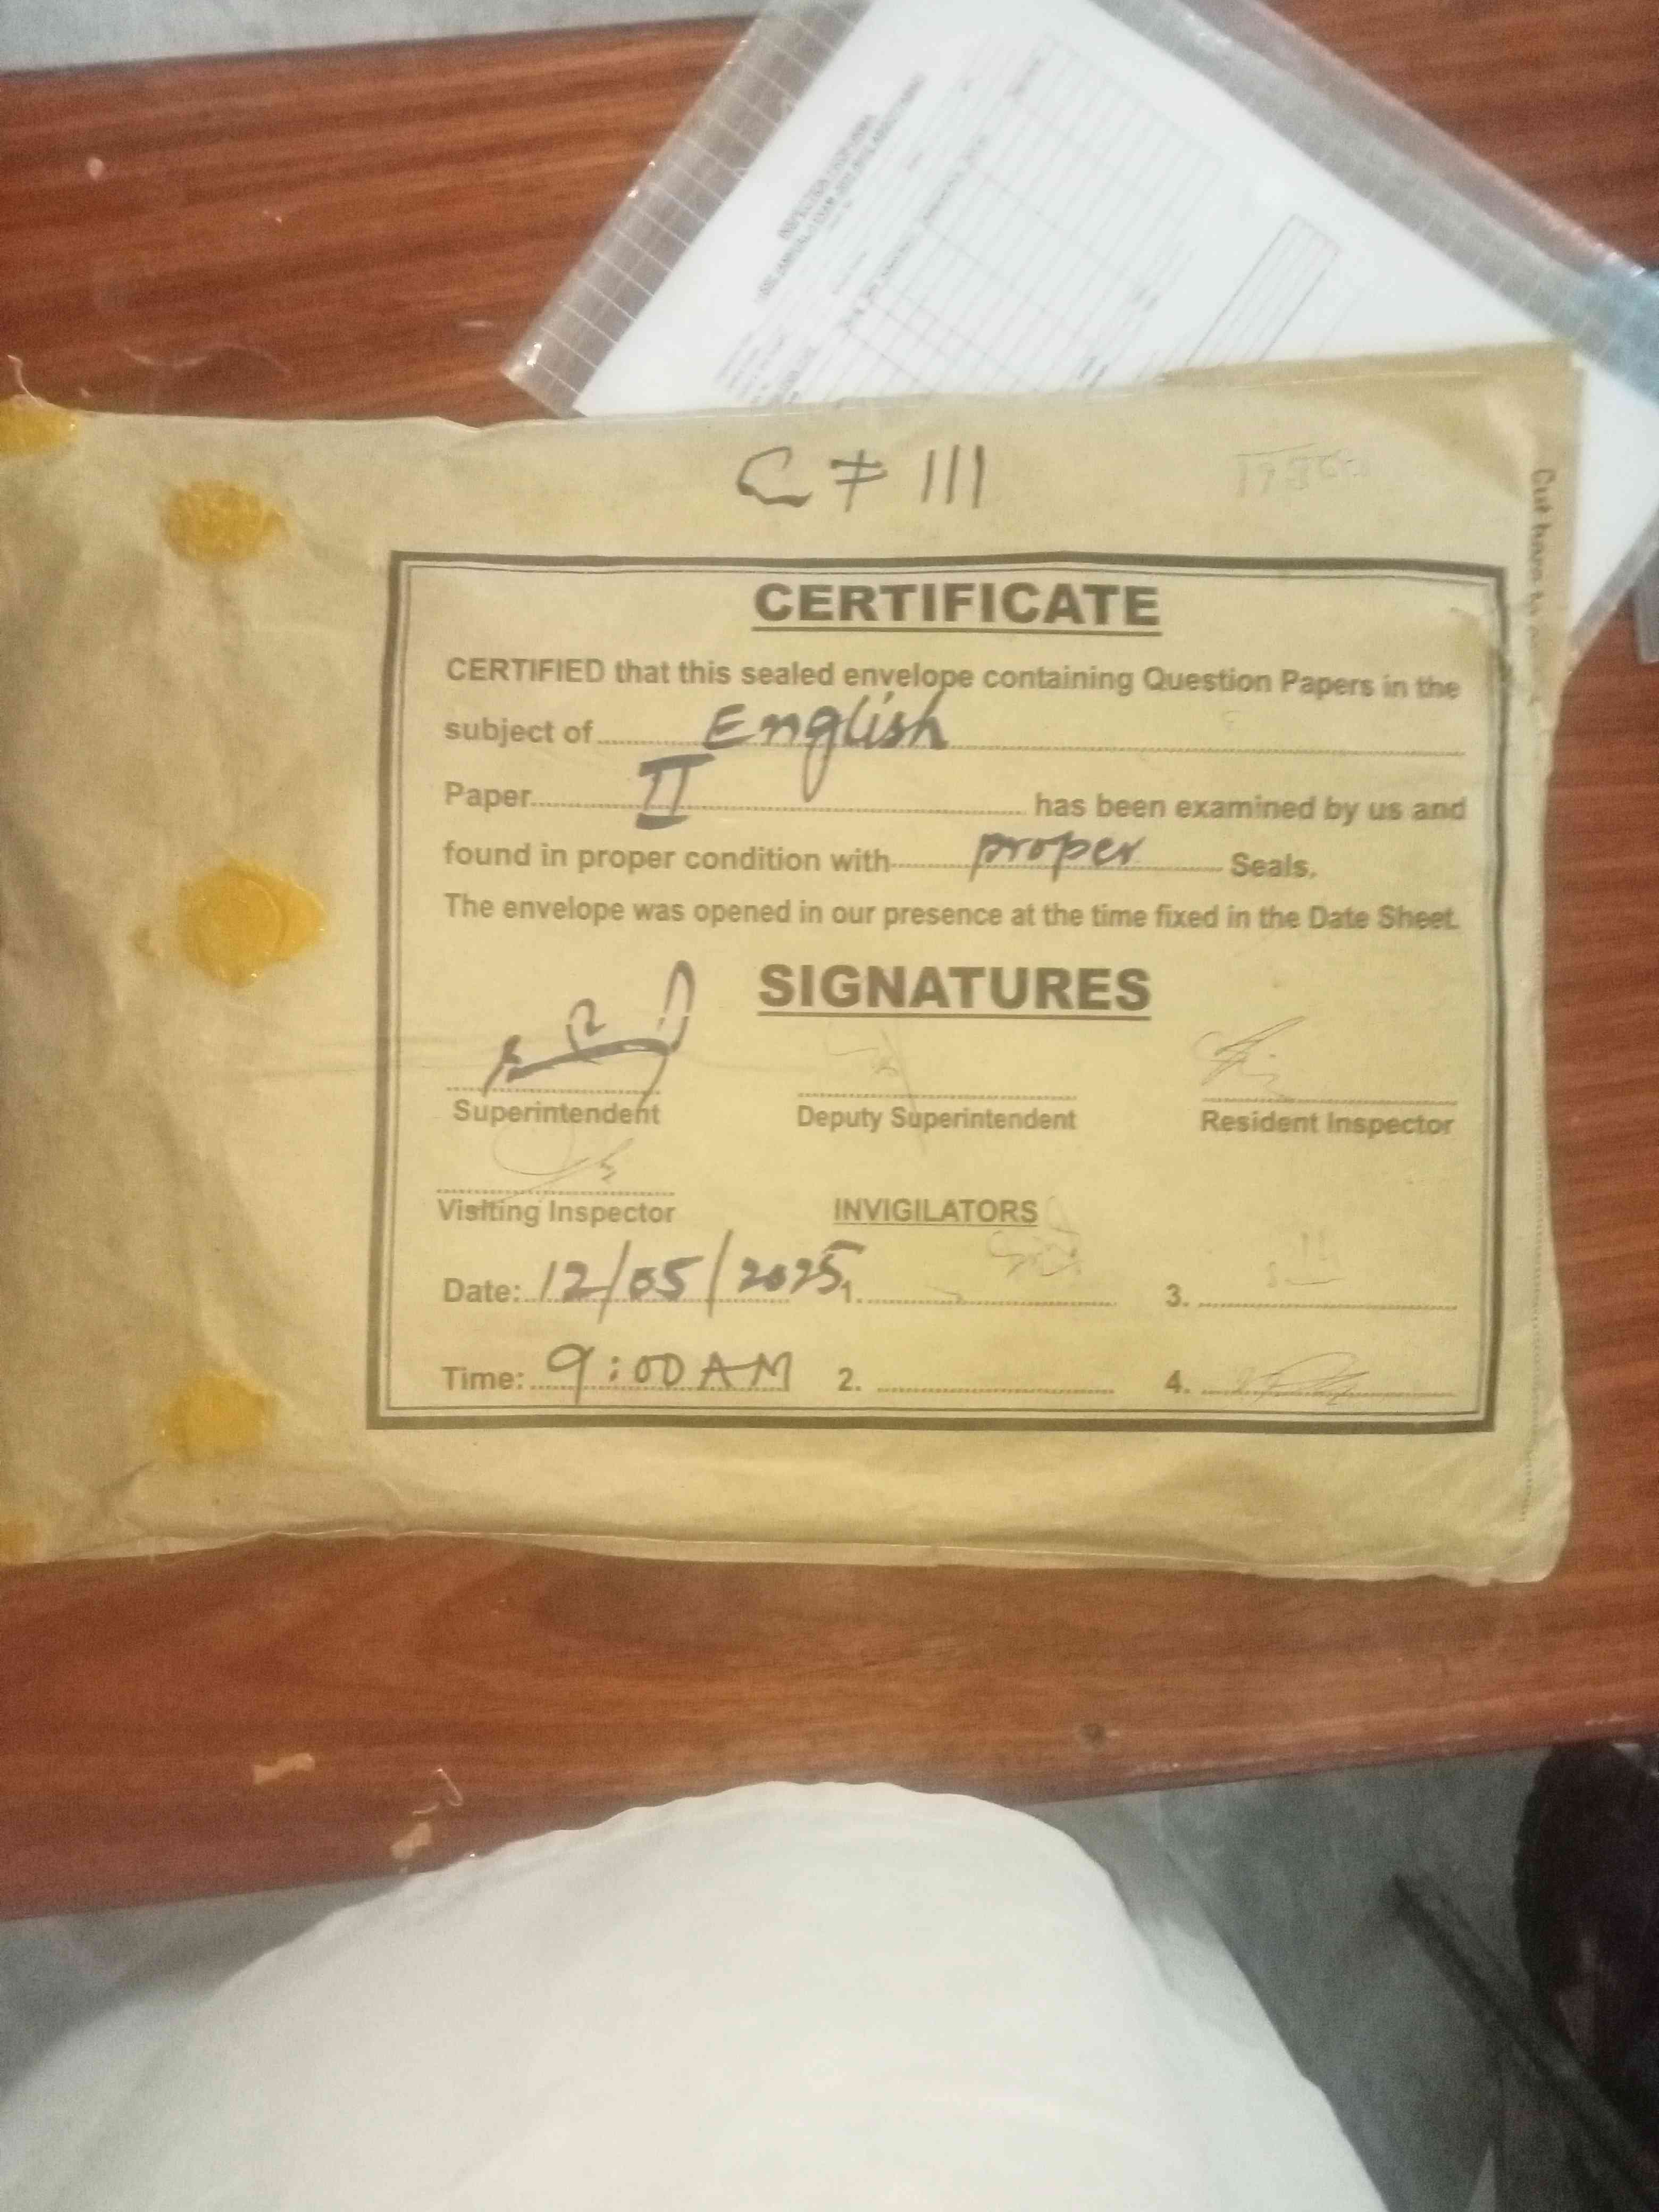 C # 111
CERTIFICATE
CERTIFIED that this sealed envelope containing Question Papers in the
subject of English
Paper II has been examined by us and
found in proper condition with proper Seals.
The envelope was opened in our presence at the time fixed in the Date Sheet.
SIGNATURES
Superintendent Deputy Superintendent Resident Inspector
Visiting Inspector INVIGILATORS
Date: 12/05/2025 1. 3.
Time: 9:00 AM 2. 4.
Cut here